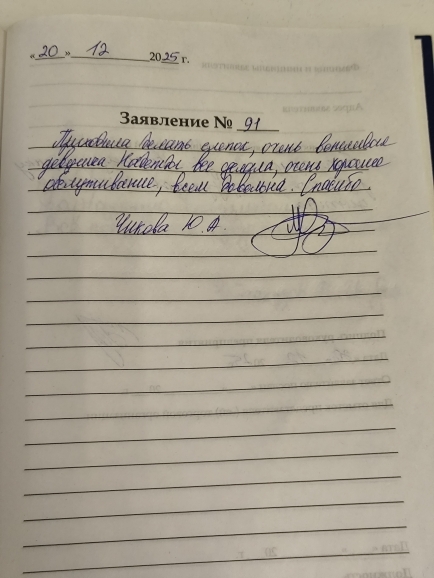 «20» 12 2025 г.
Заявление № 91
Приходила делать слепок, очень вежливая
девушка Надежда все сделала, очень хорошее
обслуживание, всем довольна. Спасибо
Чикова Ю.А.